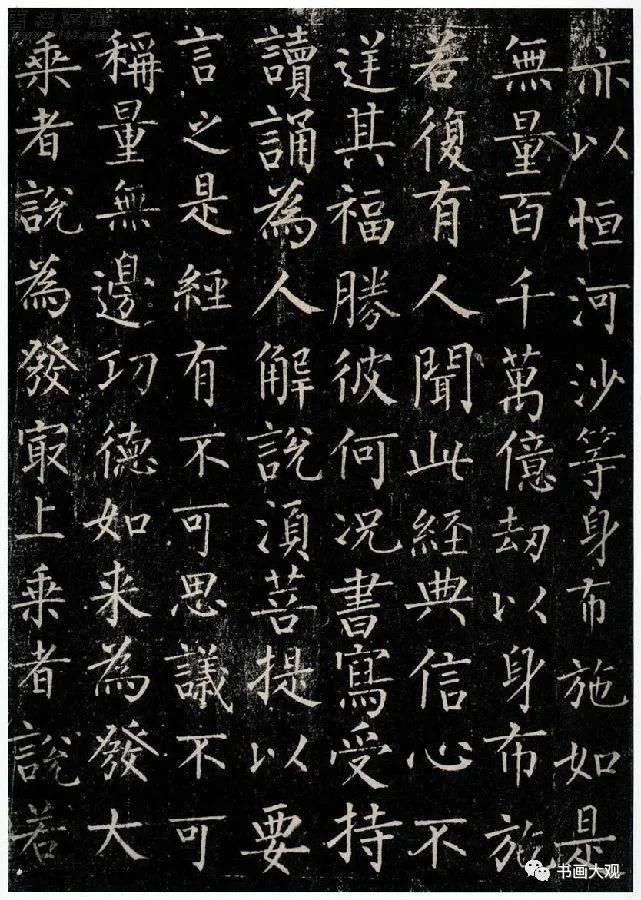 亦以恒河沙等身布施如是
無量百千萬億劫以身布施
若復有人聞此經典信心不
逆其福勝彼何况書寫受持
讀誦為人解說湏菩提以要
言之是經有不可思議不可
稱量無邊功德如来為發大
乘者說為發㝡上乘者說若
书画大观